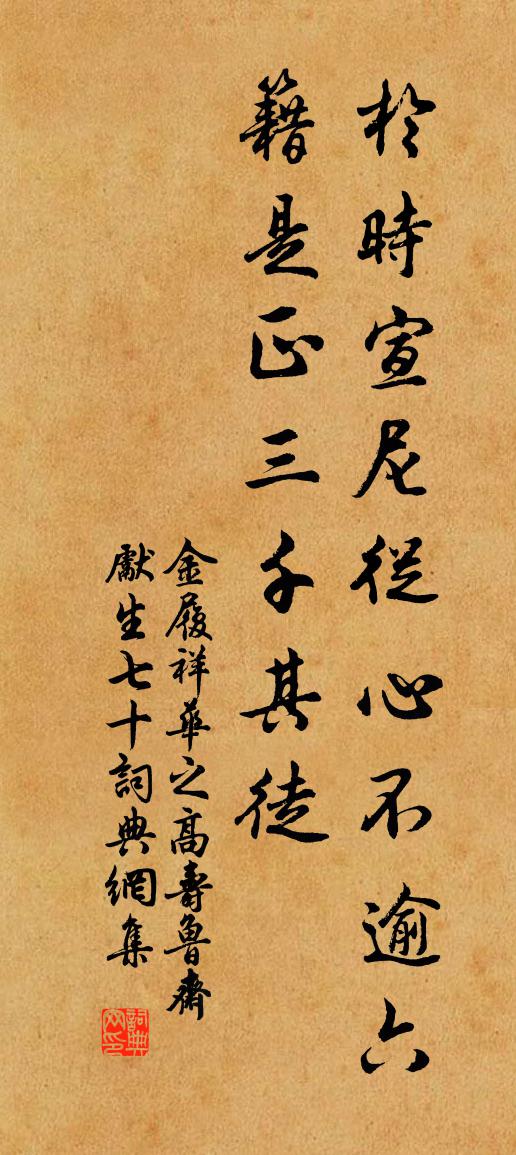 於時宣尼從心不逾六
籍是正三千其徒
金履祥華之高壽魯齋
獻生七十詞典網集
詞典網印